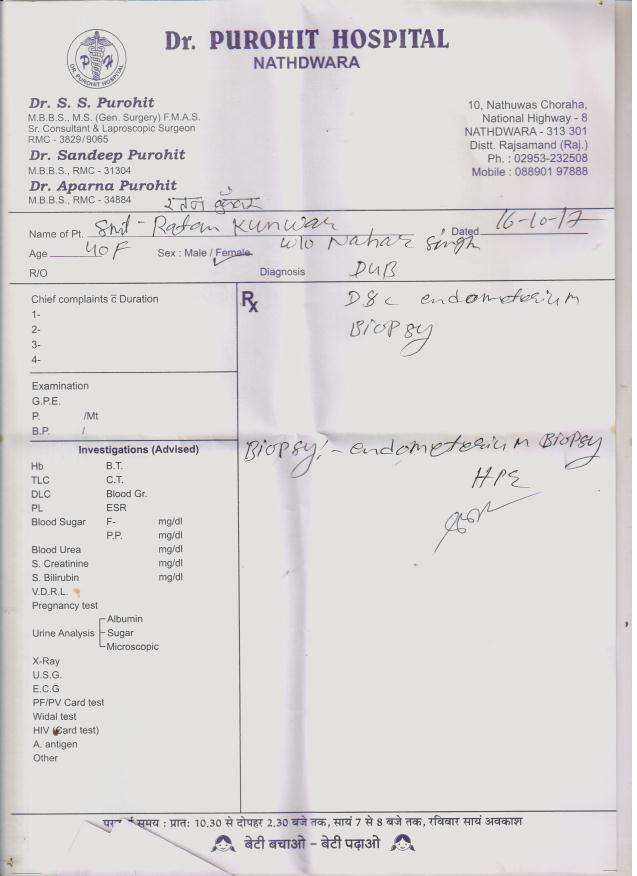 Dr. PUROHIT HOSPITAL
NATHDWARA
P H
DR. PUROHIT HOSPITAL
Dr. S. S. Purohit
M.B.B.S., M.S. (Gen. Surgery) F.M.A.S.
Sr. Consultant & Laproscopic Surgeon
RMC - 3829/9065
Dr. Sandeep Purohit
M.B.B.S., RMC - 31304
Dr. Aparna Purohit
M.B.B.S., RMC - 34884
10, Nathuwas Choraha,
National Highway - 8
NATHDWARA - 313 301
Distt. Rajsamand (Raj.)
Ph. : 02953-232508
Mobile : 088901 97888
रतन कुँवर
Name of Pt. Smt - Ratan Kunwar Dated 16-10-17
w/o Nahar Singh
Age 40F Sex : Male / Female
R/O Diagnosis DUB
Chief complaints c̄ Duration
1-
2-
3-
4-
Rx
D&C endometorium
Biopsy
Examination
G.P.E.
P. /Mt
B.P. /
Biopsy :- endometorium Biopsy
HPE
Investigations (Advised)
Hb B.T.
TLC C.T.
DLC Blood Gr.
PL ESR
Blood Sugar F- mg/dl
P.P. mg/dl
Blood Urea mg/dl
S. Creatinine mg/dl
S. Bilirubin mg/dl
V.D.R.L.
Pregnancy test
Urine Analysis Albumin
Sugar
Microscopic
X-Ray
U.S.G.
E.C.G
PF/PV Card test
Widal test
HIV (Card test)
A. antigen
Other
समय : प्रातः 10.30 से दोपहर 2.30 बजे तक, सायं 7 से 8 बजे तक, रविवार सायं अवकाश
बेटी बचाओ - बेटी पढ़ाओ